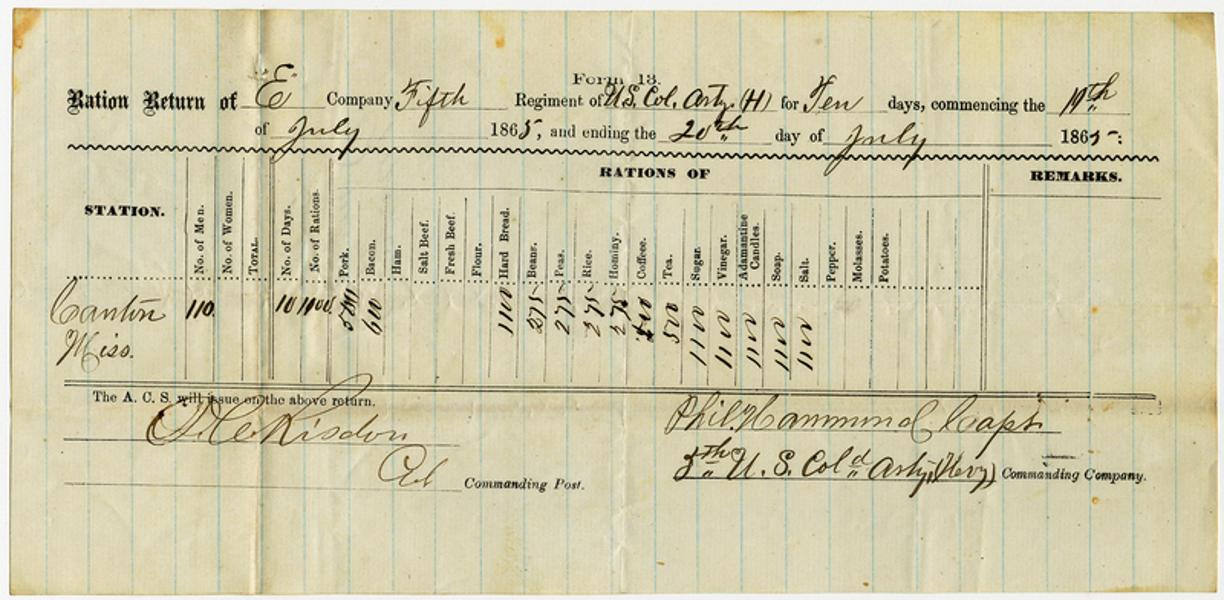 Form 13.
Ration Return of "E" Company Fifth Regiment of U.S. Col. Arty. (H) for Ten days, commencing the 11th
of July 1865, and ending the 20th day of July 1865:
RATIONS OF REMARKS.
STATION. No. of Men. No. of Women. TOTAL. No. of Days. No. of Rations. Pork. Bacon. Ham. Salt Beef. Fresh Beef. Flour. Hard Bread. Beans. Peas. Rice. Hominy. Coffeee. Tea. Sugar. Vinegar. Adamantine Candles. Soap. Salt. Pepper. Molasses. Potatoes.
Canton 110 10 1100 600 1100 275 275 275 275 500 1100 1100 1100 1100 1100
Miss.
The A. C. S. will issue on the above return.
Risdon Phil. Hammond Capt
5th U. S. Col'd Arty. (Hevy) Commanding Company.
Commanding Post.